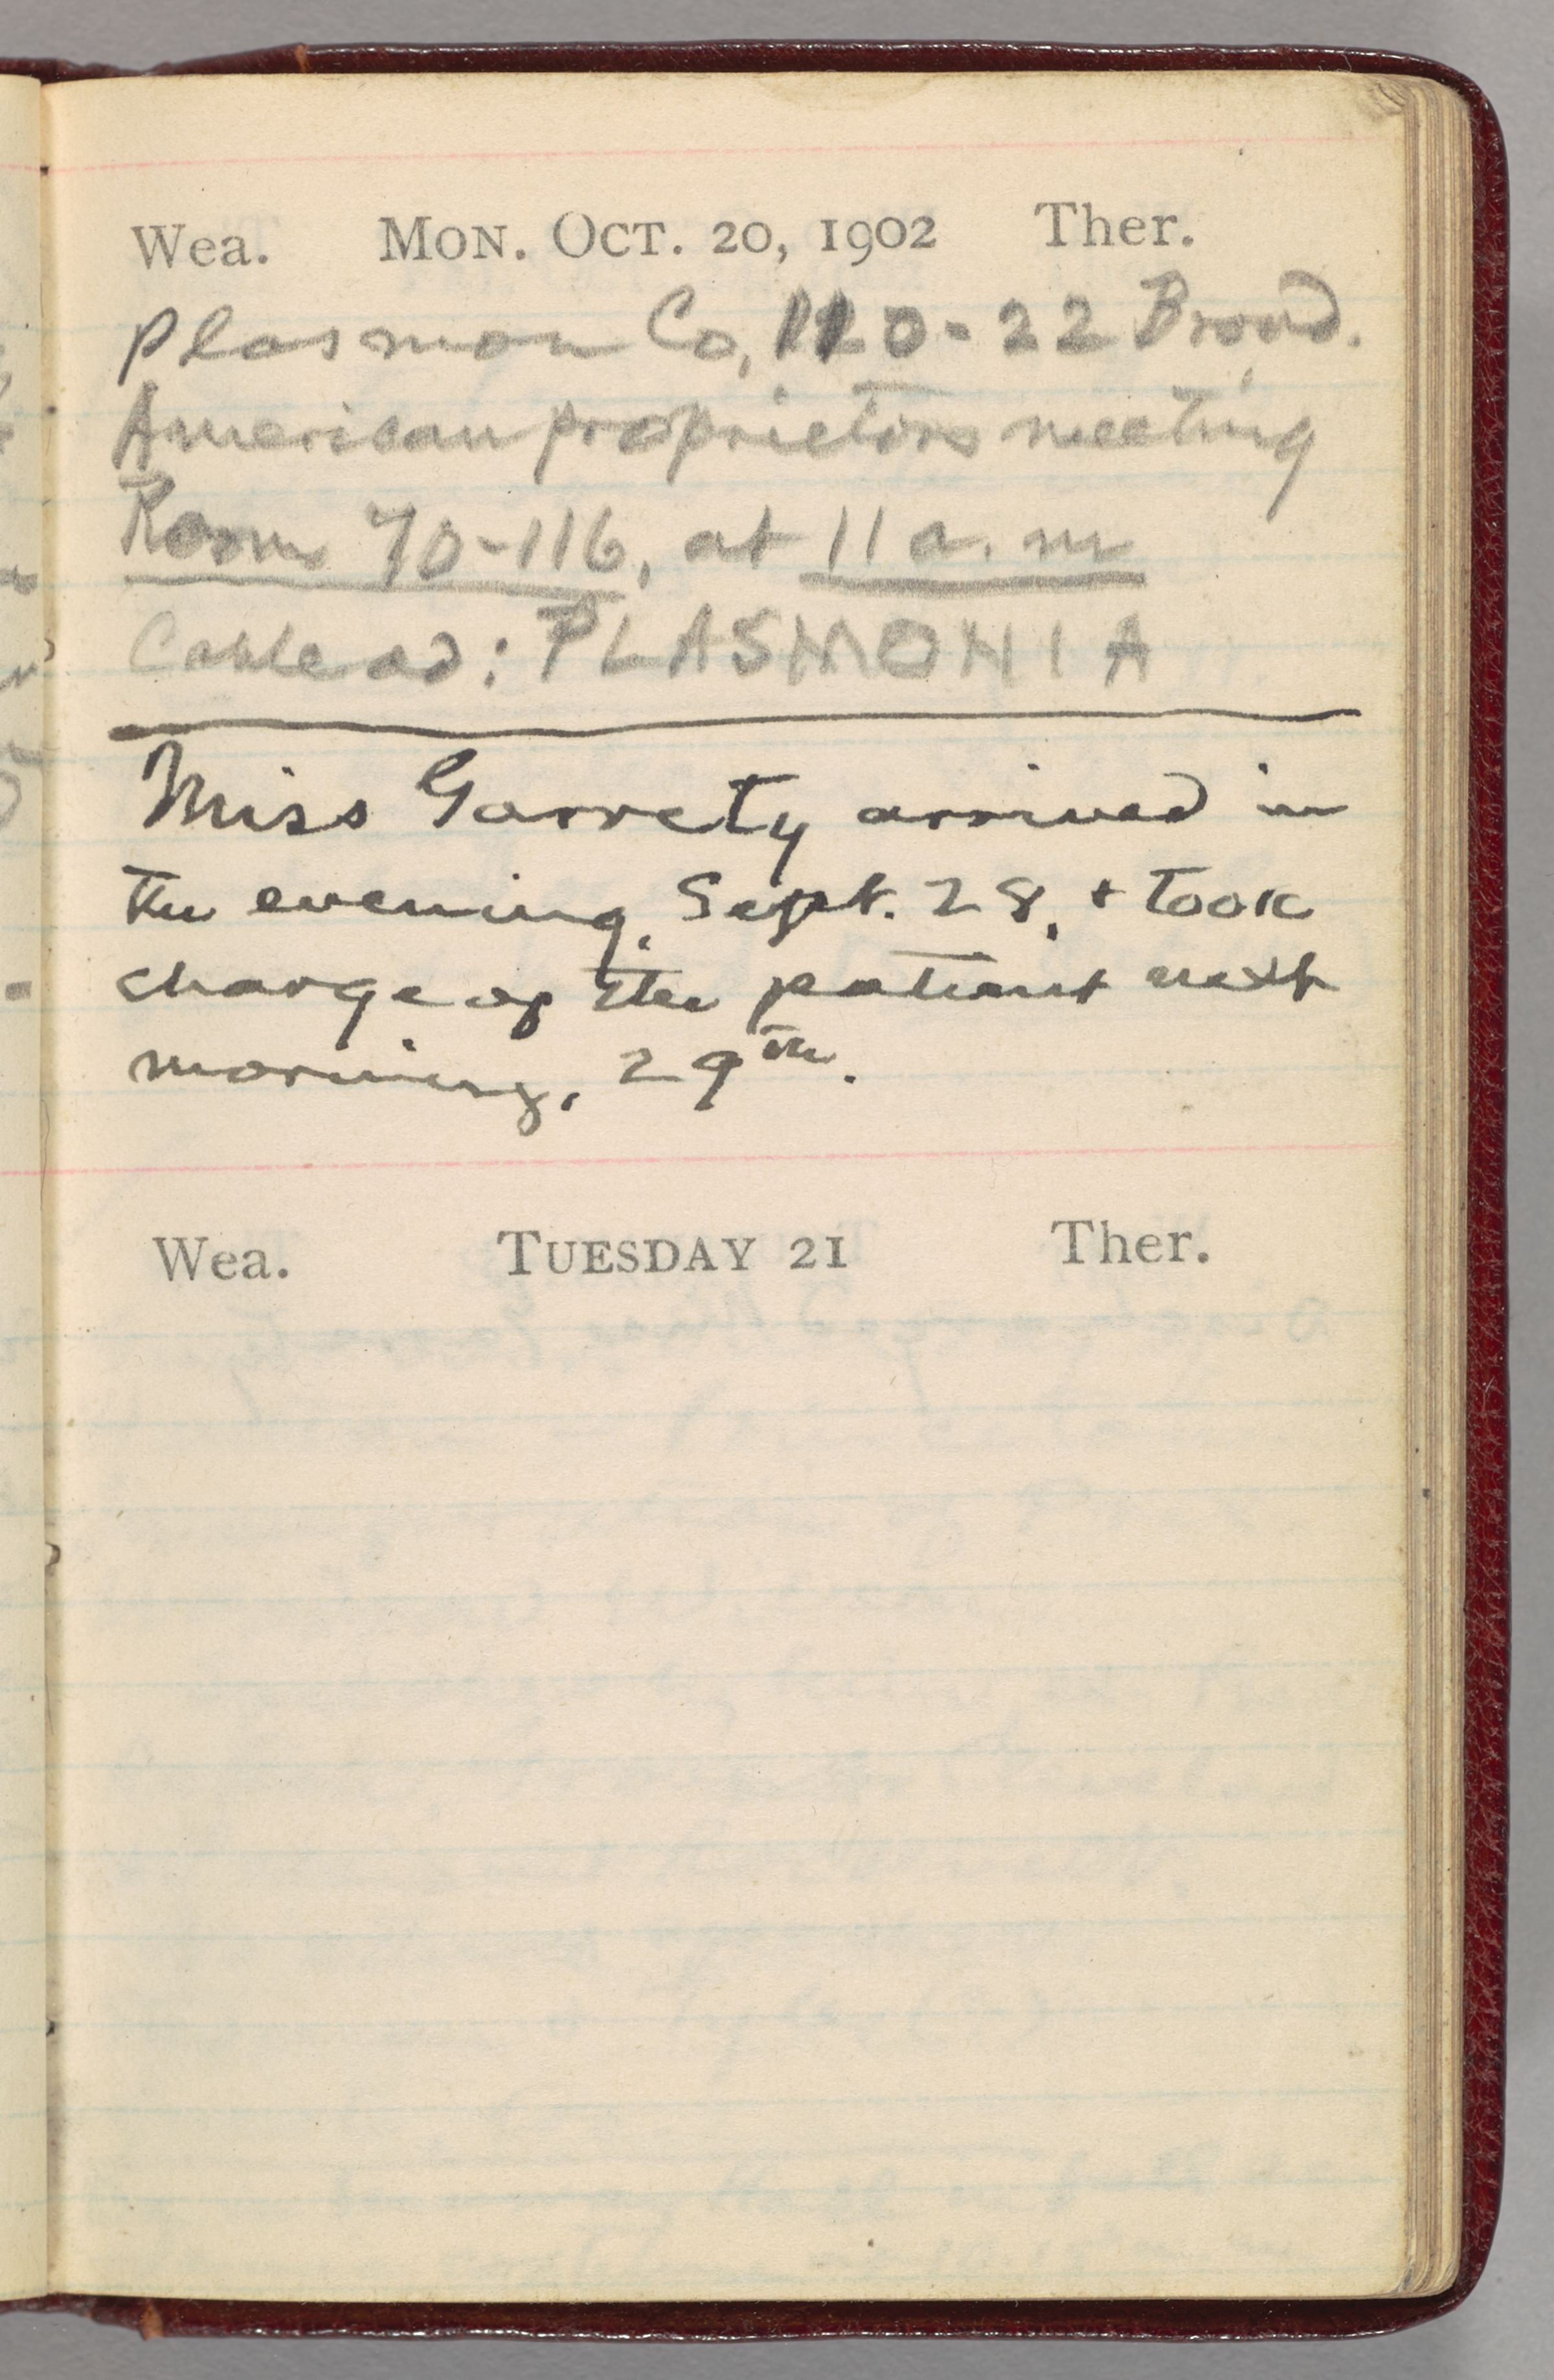 Wea. MON. OCT. 20, 1902 Ther.
Plasmon Co, 120-22 Broad.
American proprietors meeting
Room 70-116, at 11 a.m
Cable ad: PLASMONIA
Miss Garrety arrived in
the evening, Sept. 28, + took
charge of the patient next
morning, 29th.
Wea. TUESDAY 21 Ther.